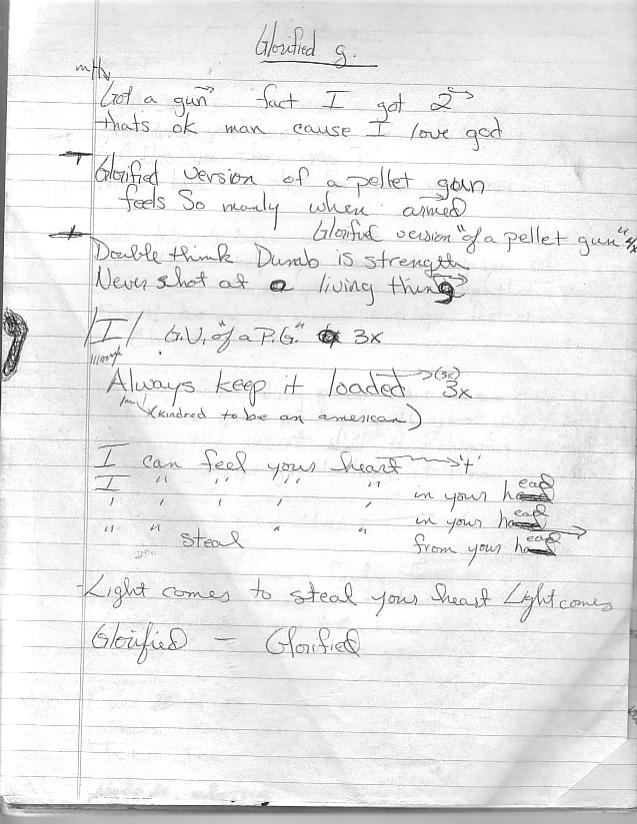 Glorified g.
Got a gun fact I got 2
thats ok man cause I love god
Glorified version of a pellet gun
feels So manly when armed
Glorified version "of a pellet gun" 4x
Double think Dumb is strength
Never shot at a living thing
/I/ G.V. "of a P.G." 3x
Always keep it loaded (3x) 3x
(kindred to be an american)
I can feel your heart
I " " " " in your head
" " " " " in your head
" " steal " " from your head
-Light comes to steal your heart Light comes
Glorified - Glorified